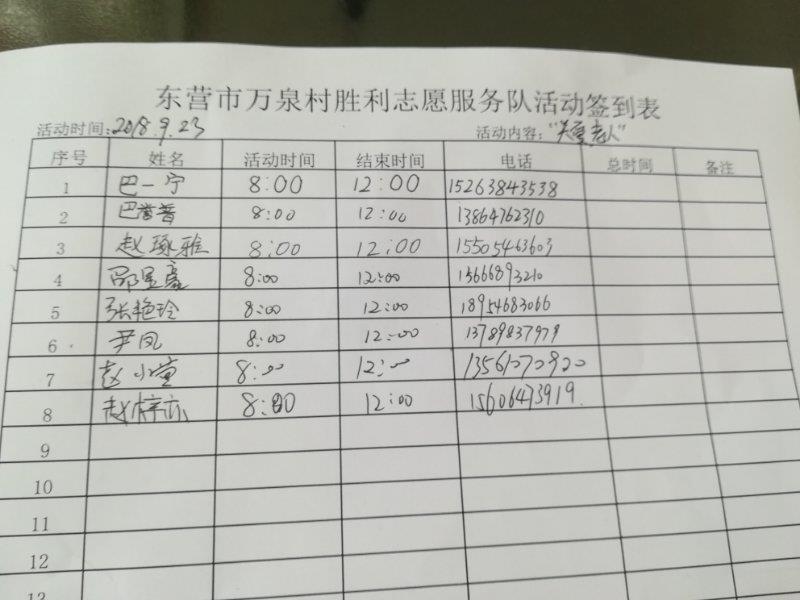 东营市万泉村胜利志愿服务队活动签到表
活动时间：2018.9.23 活动内容："关爱老人"
序号 姓名 活动时间 结束时间 电话 总时间 备注
1 巴一宁 8:00 12:00 15263843538
2 巴誉普 8:00 12:00 13864762310
3 赵琢雅 8:00 12:00 15505463603
4 邵昱鑫 8:00 12:00
5 张艳玲 8:00 12:00 18954683066
6 尹凤 8:00 12:00 13789837979
7 赵小萱 8:00 12:00 13561070920
8 赵梓亦 8:00 12:00 15606473919.
9
10
11
12
13